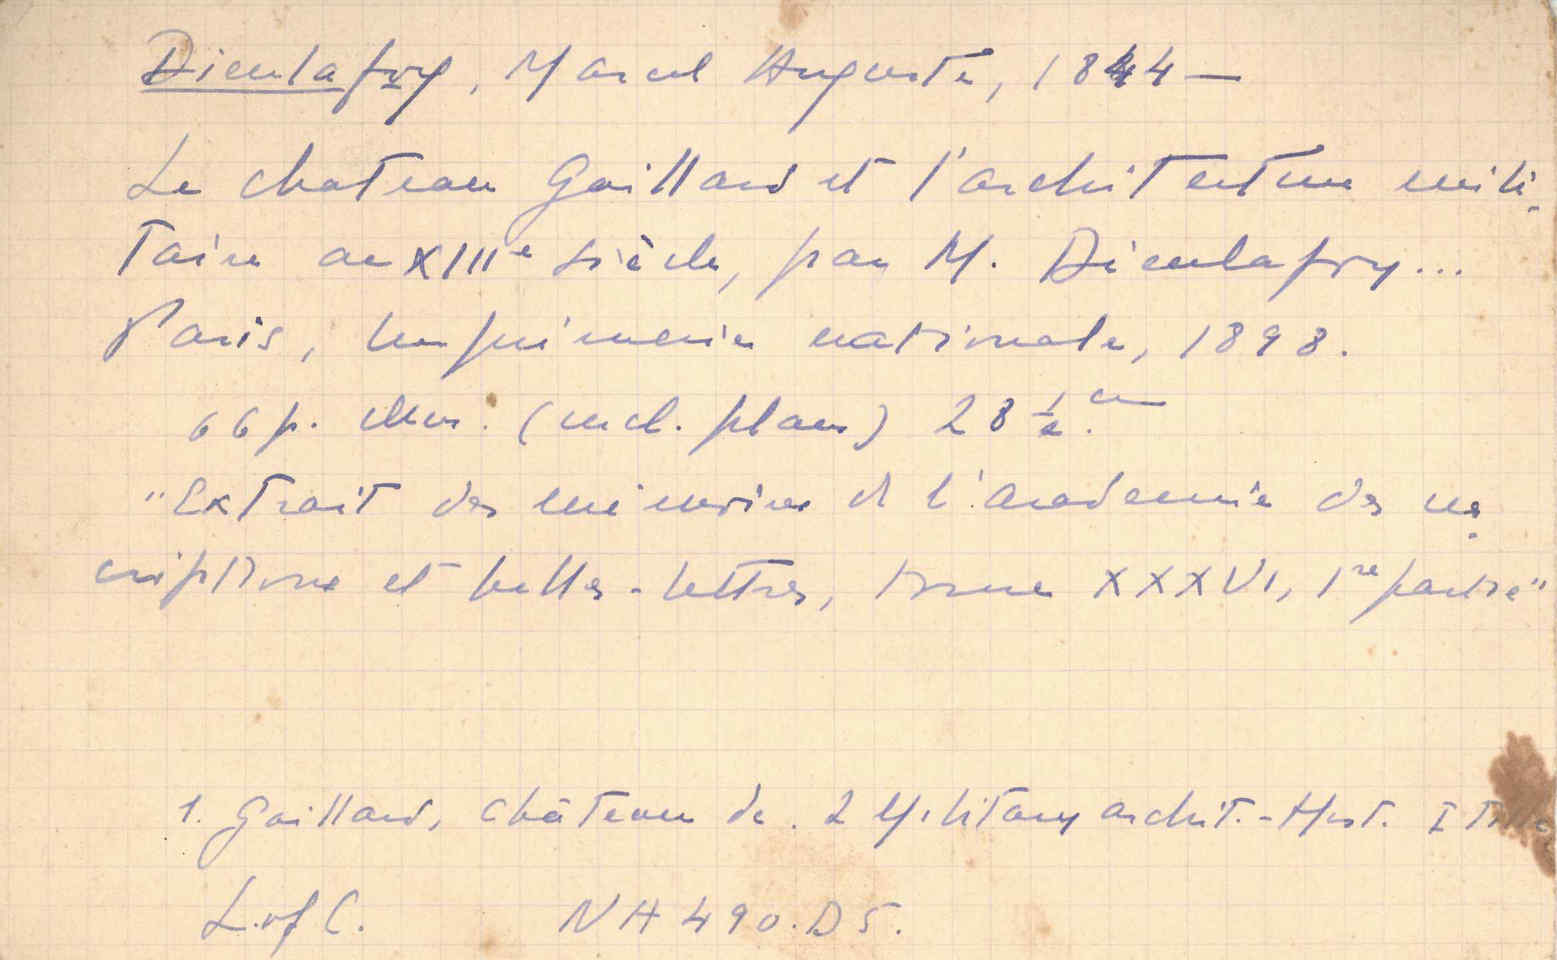 Dieulafoy, Marcel Auguste, 1844 —
Le chateau Gaillard et l'architecture mili-
taire au XIIIe siècle, par M. Dieulafoy...
Paris, Imprimerie nationale, 1898.
66 p. illus. (incl. plans) 28 1/2 cm.
"Extrait des mémoires de l'Academie des ins-
criptions et belles-lettres, tome XXXVI, 1re partie"
1. Gaillard, Château de. 2 Military archit.-Hist. I Title
L. of C. NH 490.D5.